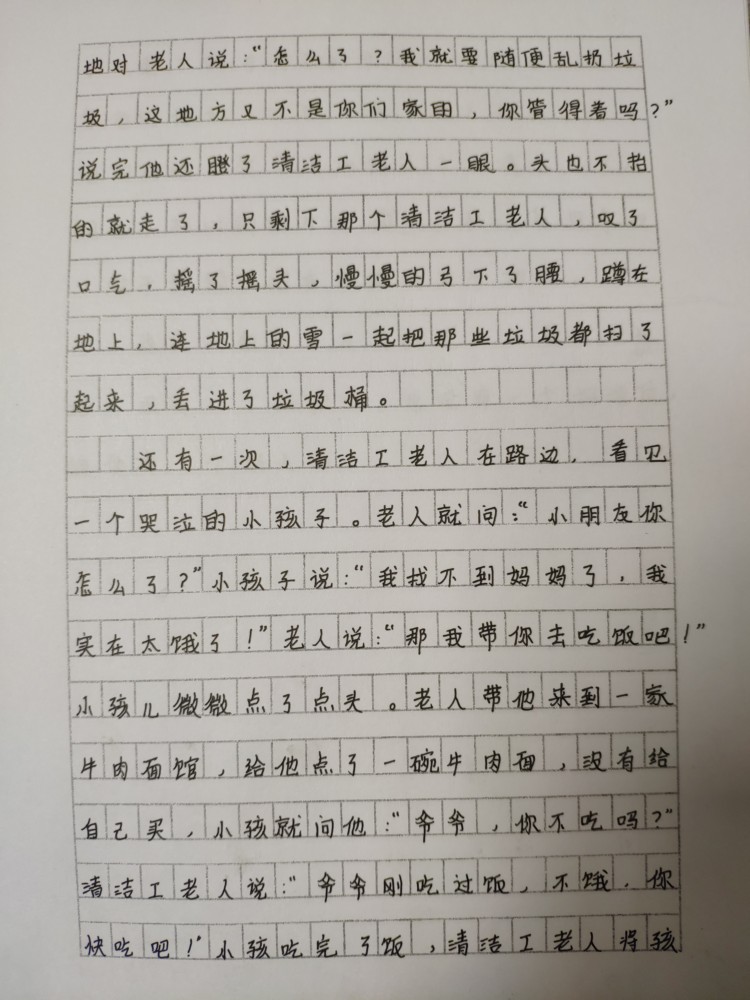 地对老人说：“怎么了？我就要随便乱扔垃
圾，这地方又不是你们家的，你管得着吗？”
说完他还瞪了清洁工老人一眼。头也不抬
的就走了，只剩下那个清洁工老人，叹了
口气，摇了摇头，慢慢的弓下了腰，蹲在
地上，连地上的雪一起把那些垃圾都扫了
起来，丢进了垃圾桶。
还有一次，清洁工老人在路边，看见
一个哭泣的小孩子。老人就问：“小朋友你
怎么了？”小孩子说：“我找不到妈妈了，我
实在太饿了！”老人说：“那我带你去吃饭吧！”
小孩儿微微点了点头。老人带他来到一家
牛肉面馆，给他点了一碗牛肉面，没有给
自己买，小孩就问他：“爷爷，你不吃吗？”
清洁工老人说：“爷爷刚吃过饭，不饿，你
快吃吧！”小孩吃完了饭，清洁工老人将孩